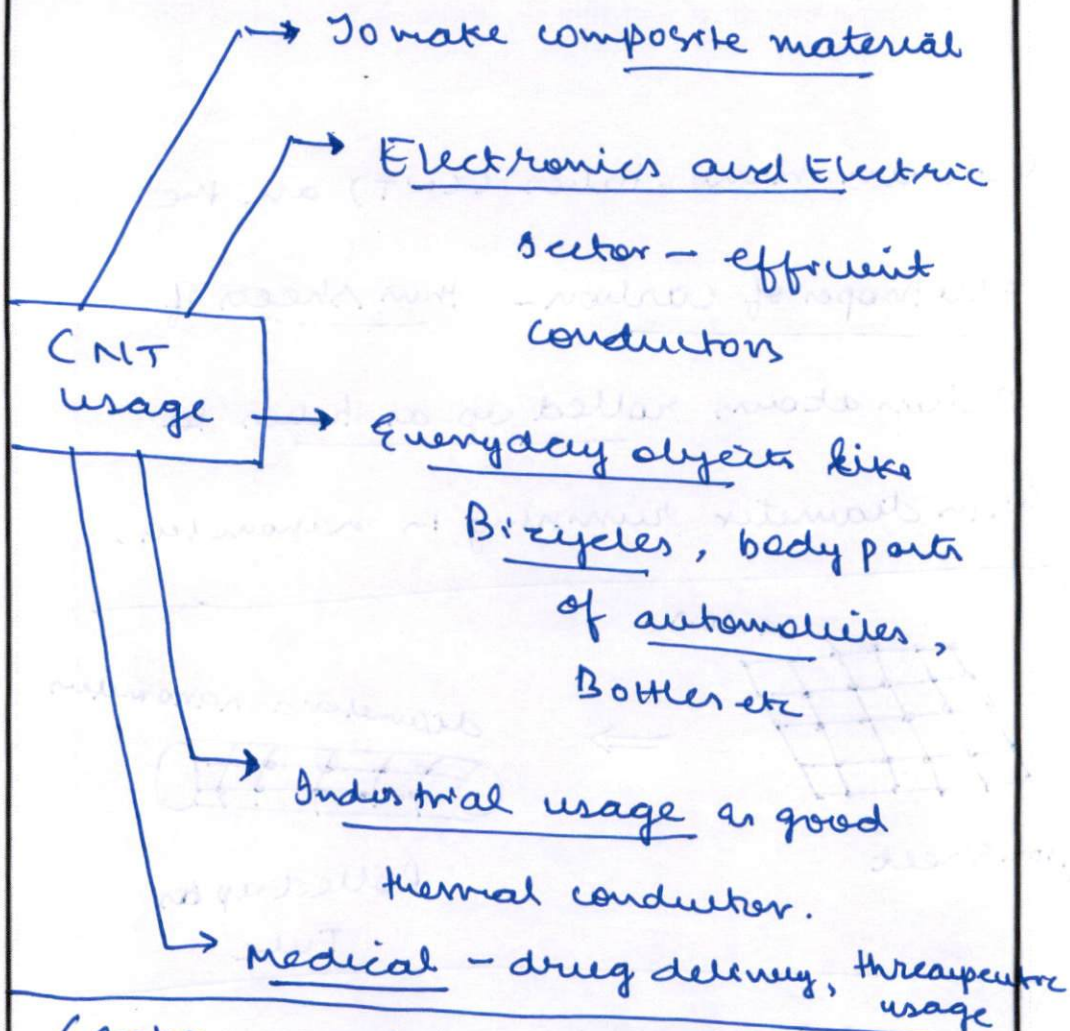 To make composite material
Electronics and Electric
sector - efficient
conductors
CNT
usage
Everyday objects like
Bicycles, body parts
of automobiles,
Bottles etc
Industrial usage as good
thermal conductor.
Medical - drug delivery, threaupeutic
usage